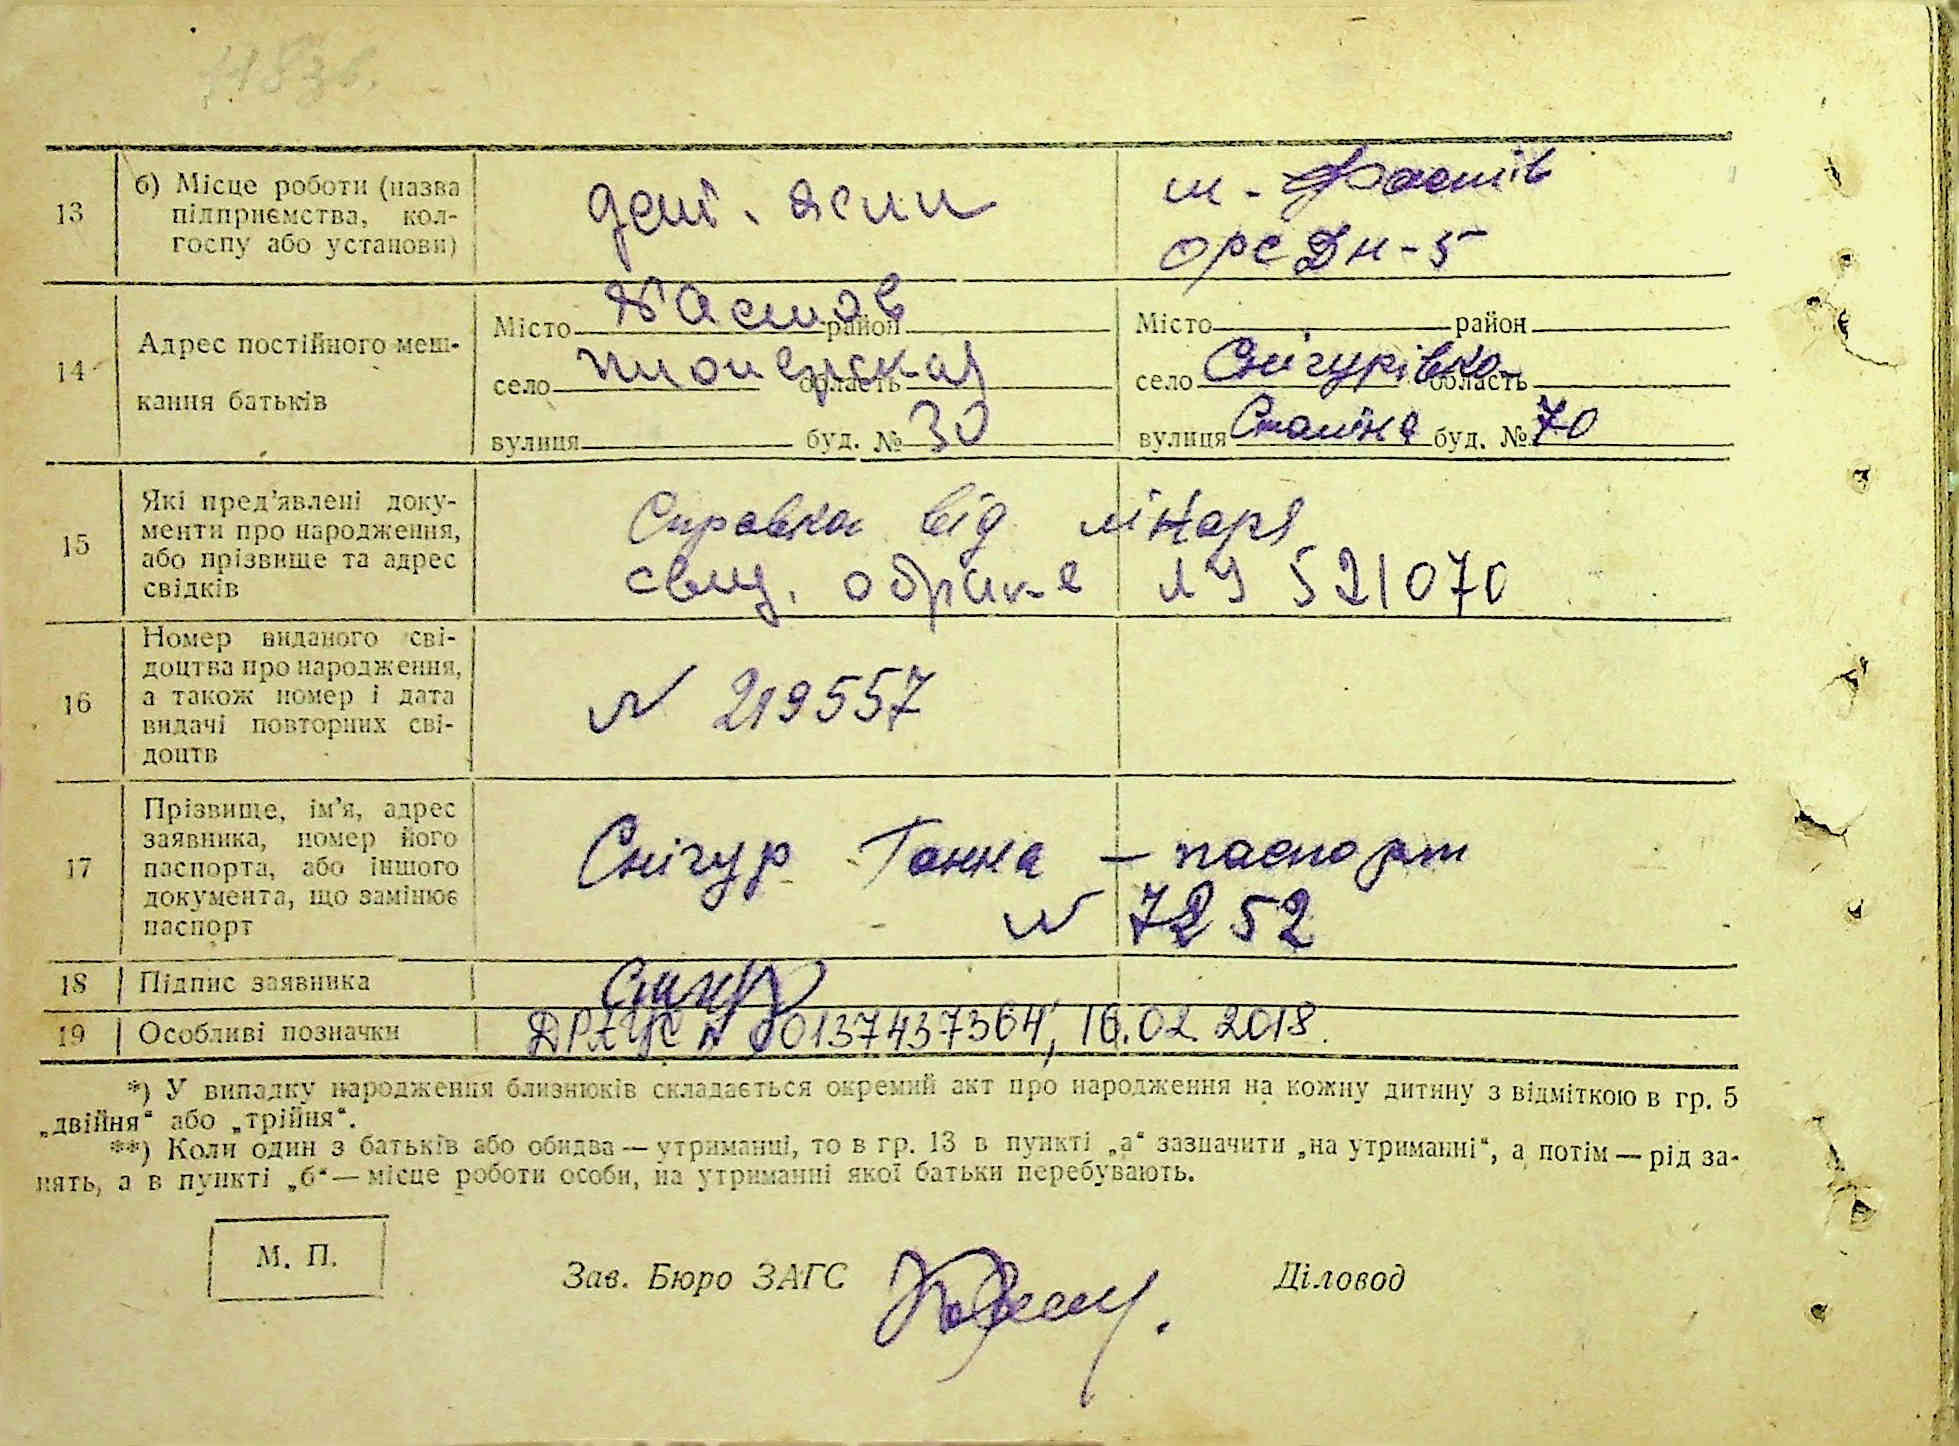 13
б) Місце роботи (назва
підприємства, кол-
госпу або установи)
дет. ясли
м. Фастів
орс Дн-5
14
Адрес постійного меш-
кання батьків
Місто Фастов район
село пионерская область
вулиця буд. № 30
Місто район
село Снігурівка область
вулиця Сталіна буд. № 70
15
Які пред'явлені доку-
менти про народження,
або прізвище та адрес
свідків
Справка від лікаря
свид. о браке ЛЯ 521070
16
Номер виданого сві-
доцтва про народження,
а також номер і дата
видачі повторних сві-
доцтв
N 219557
17
Прізвище, ім'я, адрес
заявника, номер його
паспорта, або іншого
документа, що замінює
паспорт
Снігур Ганна — паспорт
N 7252
18
Підпис заявника
19
Особливі позначки
ДРАЦС N 00137437364, 16.02.2018.
*) У випадку народження близнюків складається окремий акт про народження на кожну дитину з відміткою в гр. 5
„двійня“ або „трійня“.
**) Коли один з батьків або обидва — утриманці, то в гр. 13 в пункті „а“ зазначити „на утриманні“, а потім — рід за-
нять, а в пункті „б“ — місце роботи особи, на утриманні якої батьки перебувають.
М. П.
Зав. Бюро ЗАГС
Діловод